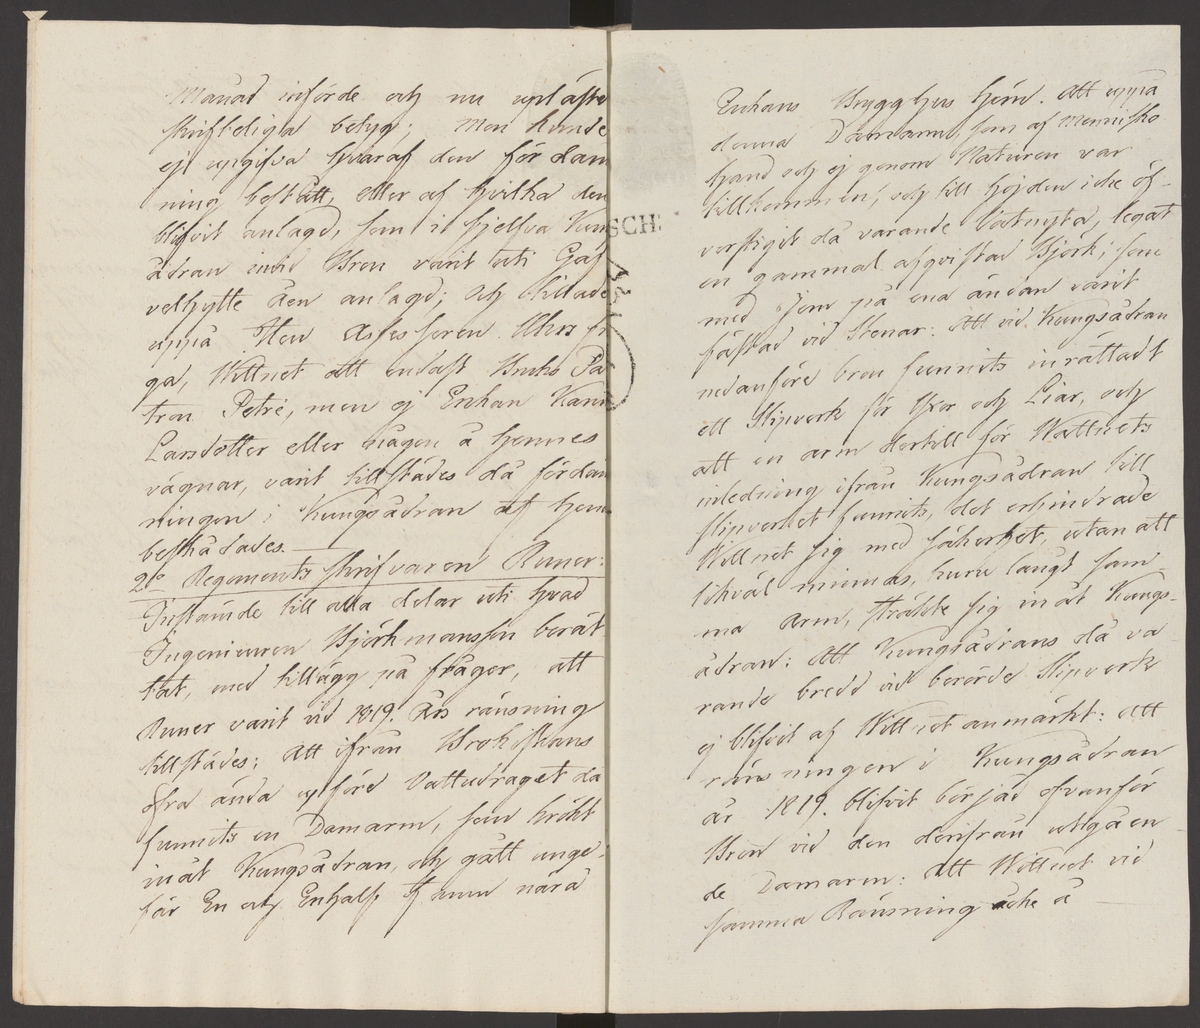 Månad införde och nu upläste
skriftediga betyg; Men kunde
ej upgifva hvaraf den fördäm
ning bestått, eller af hvilka den
blifvit anlagd, som i sjelfva Kun
ådran invid Bron varit uti Gäf
velhytte åen anlagd; och
uppå Herr Assessoren frå
ga, Wittnet att endast Bruks Pa
tron Petré, men ej Enkan Karin
Larsdotter eller någon å hennes
vägnar, varit tillstädes då fördäm
ningen i Kungsådran af honom
beskådades.
2o Regements skrifvaren Runer:
Instämde till alla delar uti hvad
Ingenieuren Björkmansson berät
tat, med tillägg på frågor, att
Runer varit vid 1819. Års ränsning
tillstädes; att ifrån Brokistans
öfra ända upföre Vattudraget då
funnits en Damarm, som krökt
inåt Kungsådran, och gått unge-
fär En och Enhalf Famn nära
Enkans Brygghus hörn. Att uppå
denna Damarm, som af Mennisko
hand och ej genom Naturen var
tillkommen, och till höjden icke öf-
verstigit då varande Vatnyta, legat
en gammal afqvistad Björk; som
med Jern på ena ändan varit
fästad vid Stenar: Att vid Kungsådran
nedanföre bron funnits inrättadt
ett Slipverk för Yxor och Liar, och
att en arm dertill för Wattnets
inledning ifrån Kungsådran till
slipverket funnits, det erhindrade
Wittnet sig med säkerhet, utan att
likväl minnas, huru långt sam-
ma Arm, sträkte sig inåt Kungs-
ådran: Att Kungsådrans då va
rande bredd vid berörde Slipverk
ej blifvit af Wittnet anmärkt: Att
ränsningen i Kungsådran
år 1819. blifvit börjad ofvanför
Bron vid den derifrån utgåen
de Damarm: Att Wittnet vid
samma Ränsning icke å
SCH: